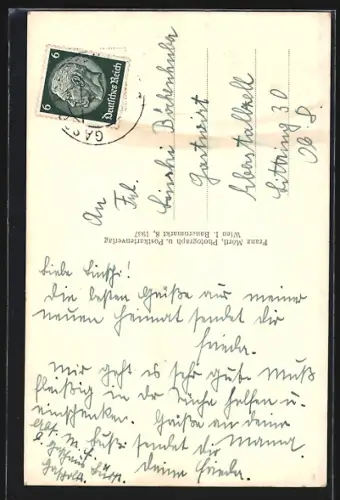 6 Deutsches Reich 6
An
Frl.
Gastwirt
Eberstallzell
30
Franz Mörtl, Photograph u. Postkartenverlag
Wien I. Bauernmarkt 8, 1937
Liebe
Die besten Grüße aus meiner
neuen Heimat sendet dir
Frieda.
Mir geht es sehr gut. Muß
fleißig in der Küche helfen u.
einschenken. Grüße an deine
sendet dir Mama.
deine Frieda.